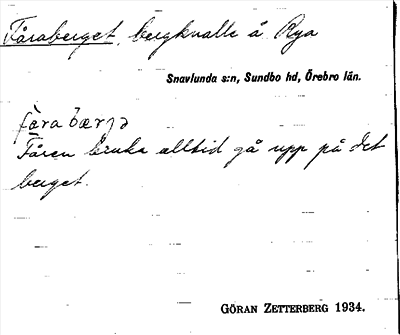 Fåraberget, bergknalle å Rya
Snavlunda s:n, Sundbo hd, Örebro län.
Fåren bruka alltid gå upp på det
berget.
GÖRAN ZETTERBERG 1934.